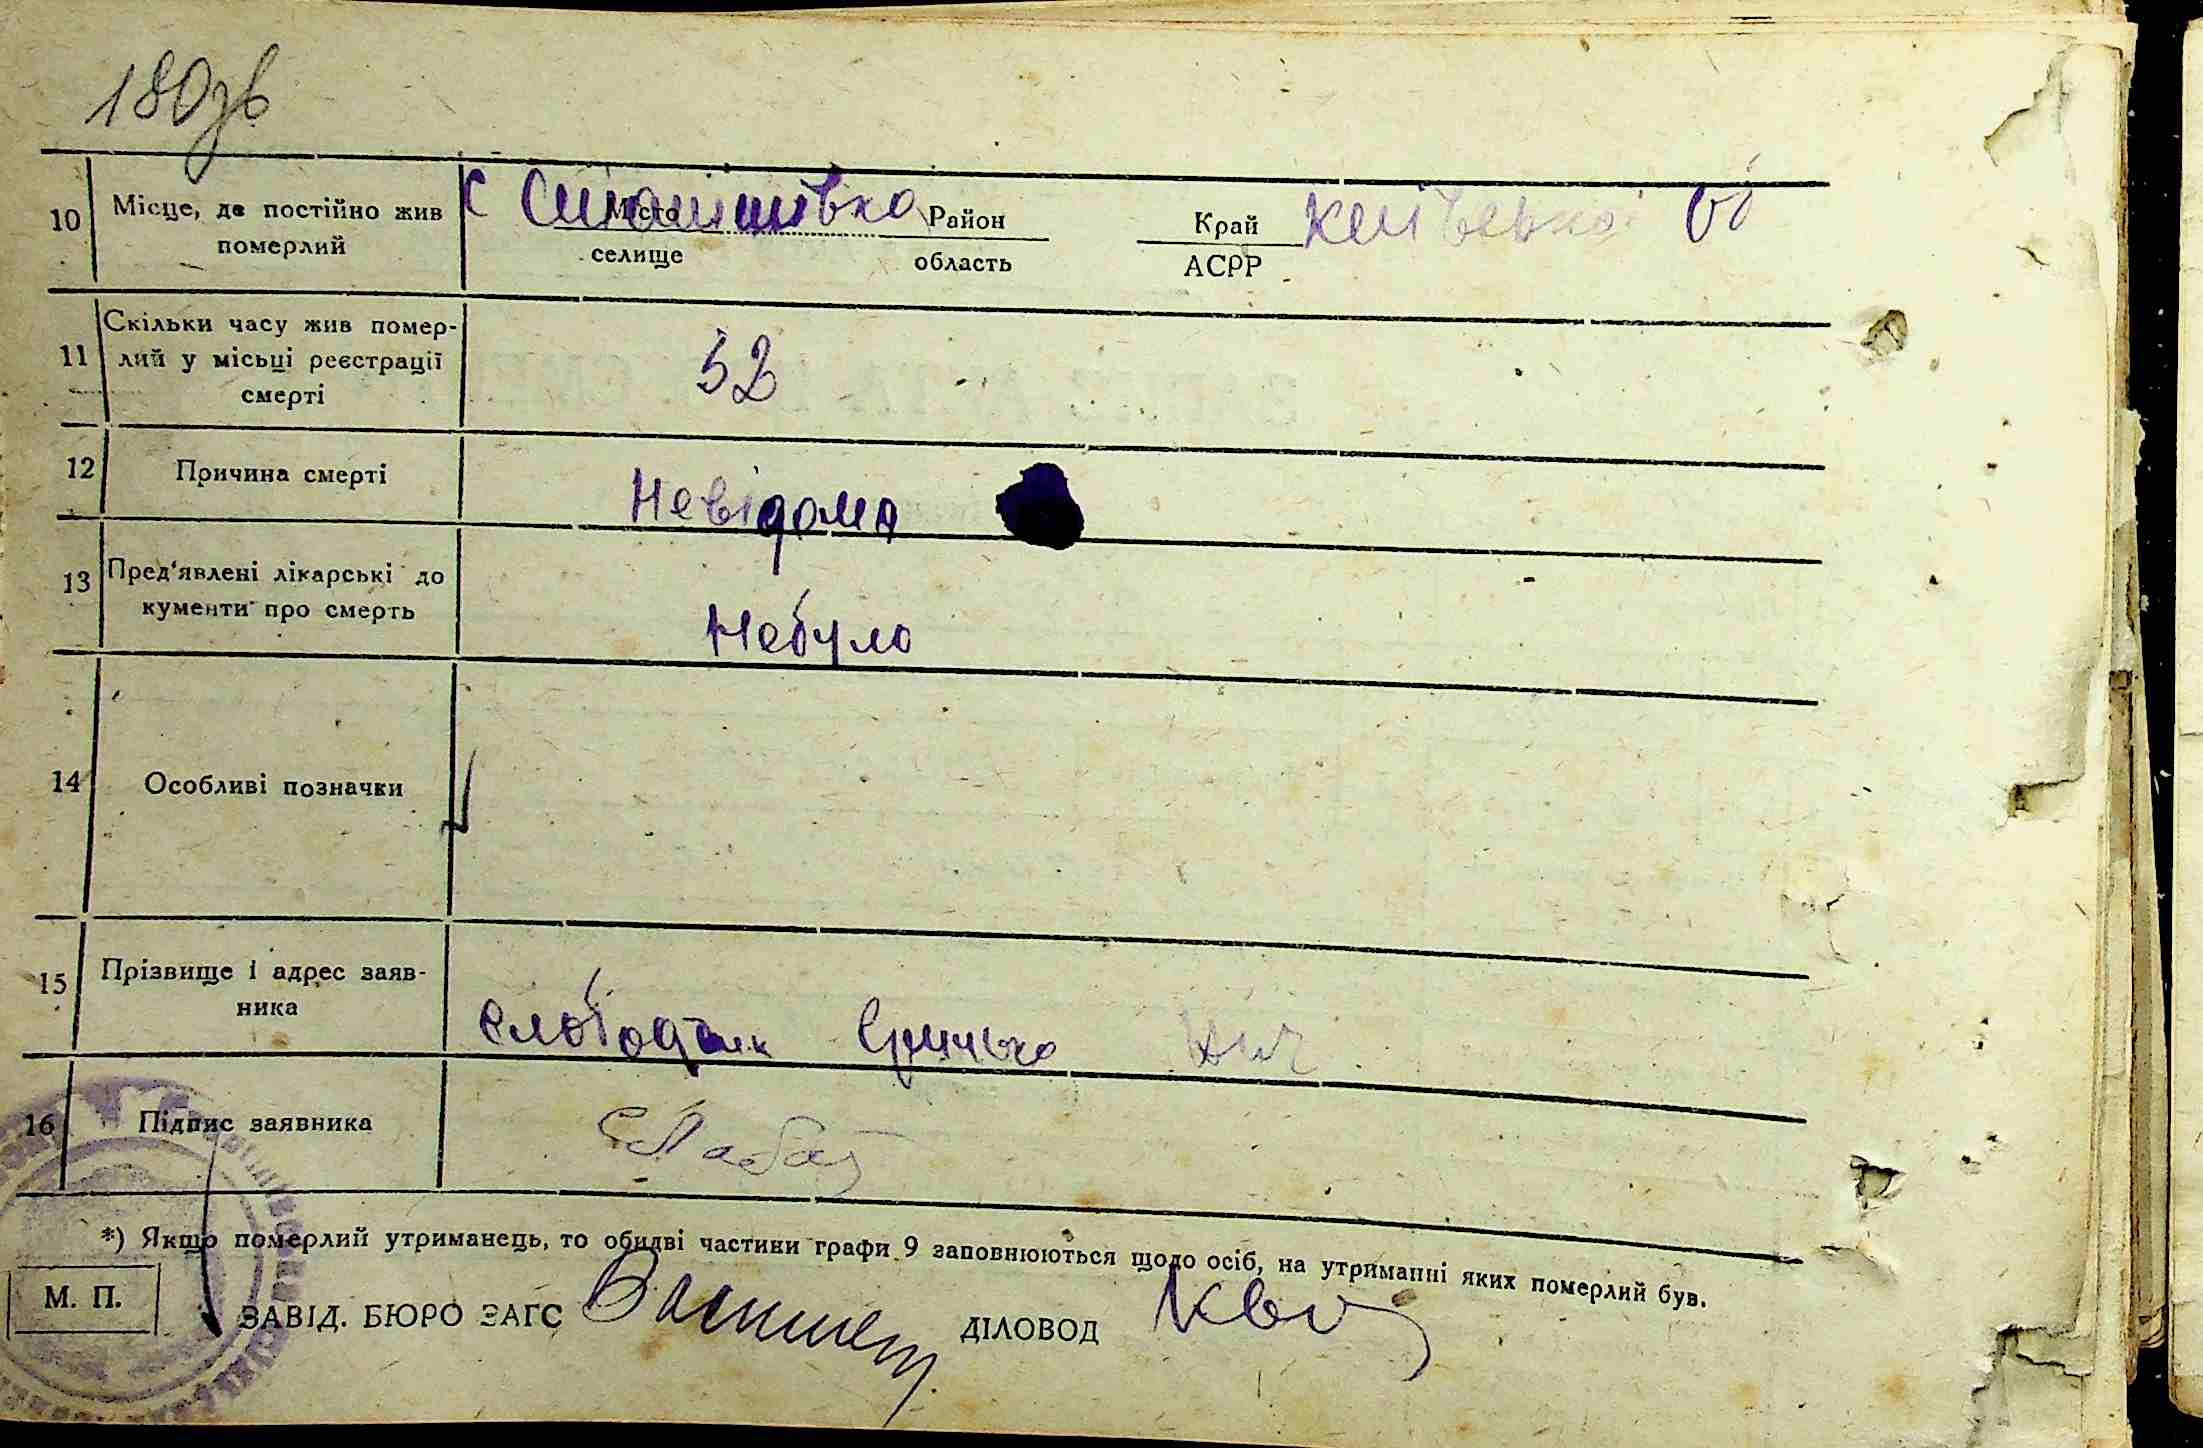 180зв
10 Місце, де постійно жив померлий с Станишівка Місто селище Район область Край АСРР Київська об
11 Скільки часу жив помер-
лий у місьці реєстрації
смерті 52
12 Причина смерті Невідома
13 Пред'явлені лікарські до
кументи про смерть Небуло
14 Особливі позначки
15 Прізвище і адрес заяв-
ника Слободяник
16 Підпис заявника
*) Якщо померлий утриманець, то обидві частини графи 9 заповнюються щодо осіб, на утриманні яких померлий був.
М. П. ЗАВІД. БЮРО ЗАГС ДІЛОВОД